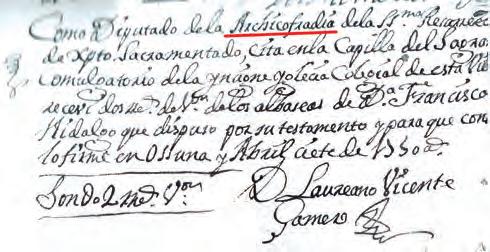 Como Diputado de la Archicofradia de la SSma Resurecc
de Xpto. Sacramentado, Cita en la Capilla del Sagra
Comulgatorio de la ynsigne yglecia Colegial de esta
receví dos rs. de Vn. de los albaseas de Dn. Francisco
Hidalgo que dispuso por su testamento y para que con
lo firme en Ossuna y Abril ciete de
Son dos rs. Von
D Laureano Vicente
Gamero